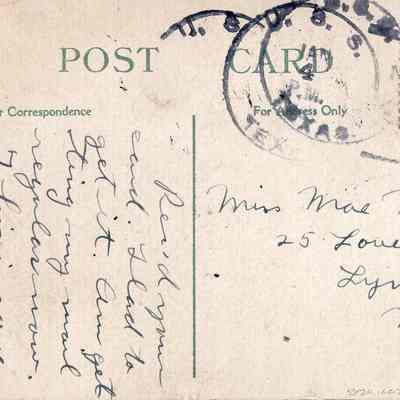 POST CARD
Correspondence
For Address Only
U. S. S.
JAN
4
P.M.
TEXAS.
TEX
Rec'd your
card. Glad to
get it. Am get
ting my mail
regular now.
Miss Mae
25 Love
Lyn